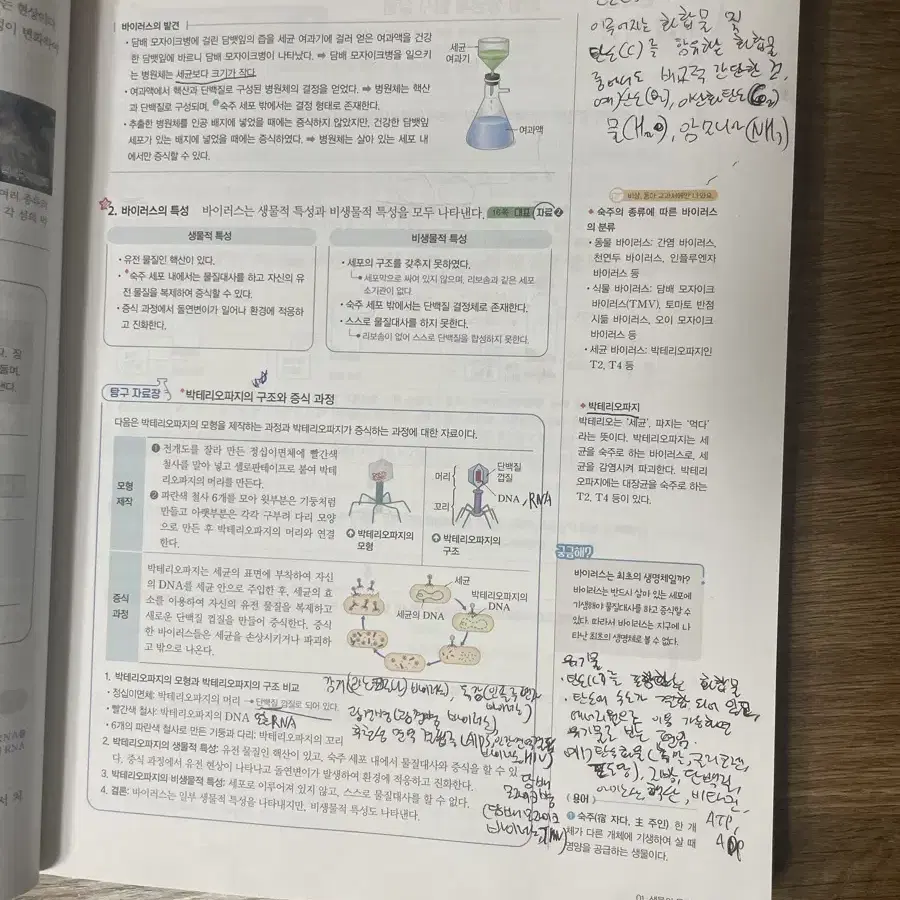 바이러스의 발견
• 담배 모자이크병에 걸린 담뱃잎의 즙을 세균 여과기에 걸러 얻은 여과액을 건강
한 담뱃잎에 바르니 담배 모자이크병이 나타났다. ➡ 담배 모자이크병을 일으키
는 병원체는 세균보다 크기가 작다.
• 여과액에서 핵산과 단백질로 구성된 병원체의 결정을 얻었다. ➡ 병원체는 핵산
과 단백질로 구성되며, ❶숙주 세포 밖에서는 결정 형태로 존재한다.
• 추출한 병원체를 인공 배지에 넣었을 때에는 증식하지 않았지만, 건강한 담뱃잎
세포가 있는 배지에 넣었을 때에는 증식하였다. ➡ 병원체는 살아 있는 세포 내
에서만 증식할 수 있다.
세균
여과기
여과액
이루어지는 화합물 및
탄소(C)를 함유하는 화합물
중에서도 비교적 간단한 것.
예) 산소(O₂), 이산화탄소(CO₂)
물(H₂O), 암모니아(NH₃)
2. 바이러스의 특성 바이러스는 생물적 특성과 비생물적 특성을 모두 나타낸다. 16쪽 대표 자료❷
생물적 특성
• 유전 물질인 핵산이 있다.
• *숙주 세포 내에서는 물질대사를 하고 자신의 유
전 물질을 복제하여 증식할 수 있다.
• 증식 과정에서 돌연변이가 일어나 환경에 적응하
고 진화한다.
비생물적 특성
• 세포의 구조를 갖추지 못하였다.
세포막으로 싸여 있지 않으며, 리보솜과 같은 세포
소기관이 없다.
• 숙주 세포 밖에서는 단백질 결정체로 존재한다.
• 스스로 물질대사를 하지 못한다.
리보솜이 없어 스스로 단백질을 합성하지 못한다.
비상, 동아 교과서에만 나와요.
* 숙주의 종류에 따른 바이러스
의 분류
• 동물 바이러스: 간염 바이러스,
천연두 바이러스, 인플루엔자
바이러스 등
• 식물 바이러스: 담배 모자이크
바이러스(TMV), 토마토 반점
시듦 바이러스, 오이 모자이크
바이러스 등
• 세균 바이러스: 박테리오파지인
T2, T4 등
탐구 자료창 *박테리오파지의 구조와 증식 과정
다음은 박테리오파지의 모형을 제작하는 과정과 박테리오파지가 증식하는 과정에 대한 자료이다.
모형
제작
❶ 전개도를 잘라 만든 정십이면체에 빨간색
철사를 말아 넣고 셀로판테이프로 붙여 박테
리오파지의 머리를 만든다.
❷ 파란색 철사 6개를 모아 윗부분은 기둥처럼
만들고 아랫부분은 각각 구부려 다리 모양
으로 만든 후 박테리오파지의 머리와 연결
한다.
박테리오파지의
모형
머리
꼬리
단백질
껍질
DNA, RNA
박테리오파지의
구조
증식
과정
박테리오파지는 세균의 표면에 부착하여 자신
의 DNA를 세균 안으로 주입한 후, 세균의 효
소를 이용하여 자신의 유전 물질을 복제하고
새로운 단백질 껍질을 만들어 증식한다. 증식
한 바이러스들은 세균을 손상시키거나 파괴하
고 밖으로 나온다.
세균
세균의 DNA
박테리오파지의
DNA
* 박테리오파지
박테리오는 '세균', 파지는 '먹다'
라는 뜻이다. 박테리오파지는 세
균을 숙주로 하는 바이러스로, 세
균을 감염시켜 파괴한다. 박테리
오파지에는 대장균을 숙주로 하는
T2, T4 등이 있다.
궁금해?
바이러스는 최초의 생명체일까?
바이러스는 반드시 살아 있는 세포에
기생해야 물질대사를 하고 증식할 수
있다. 따라서 바이러스는 지구에 나
타난 최초의 생명체로 볼 수 없다.
1. 박테리오파지의 모형과 박테리오파지의 구조 비교
• 정십이면체: 박테리오파지의 머리 → 단백질 껍질로 되어 있다.
• 빨간색 철사: 박테리오파지의 DNA 또는 RNA
• 6개의 파란색 철사로 만든 기둥과 다리: 박테리오파지의 꼬리
2. 박테리오파지의 생물적 특성: 유전 물질인 핵산이 있고, 숙주 세포 내에서 물질대사와 증식을 할 수 있
다. 증식 과정에서 유전 현상이 나타나고 돌연변이가 발생하여 환경에 적응하고 진화한다.
3. 박테리오파지의 비생물적 특성: 세포로 이루어져 있지 않고, 스스로 물질대사를 할 수 없다.
4. 결론: 바이러스는 일부 생물적 특성을 나타내지만, 비생물적 특성도 나타낸다.
바이러스), 독감(인플루엔자
바이러스)
담배
모자이크병
(담배 모자이크
바이러스, TMV)
유기물
• 탄소(C)를 포함하는 화합물
ATP,
ADP
(용어)
❶ 숙주(宿 자다, 主 주인) 한 개
체가 다른 개체에 기생하여 살 때
영양을 공급하는 생물이다.